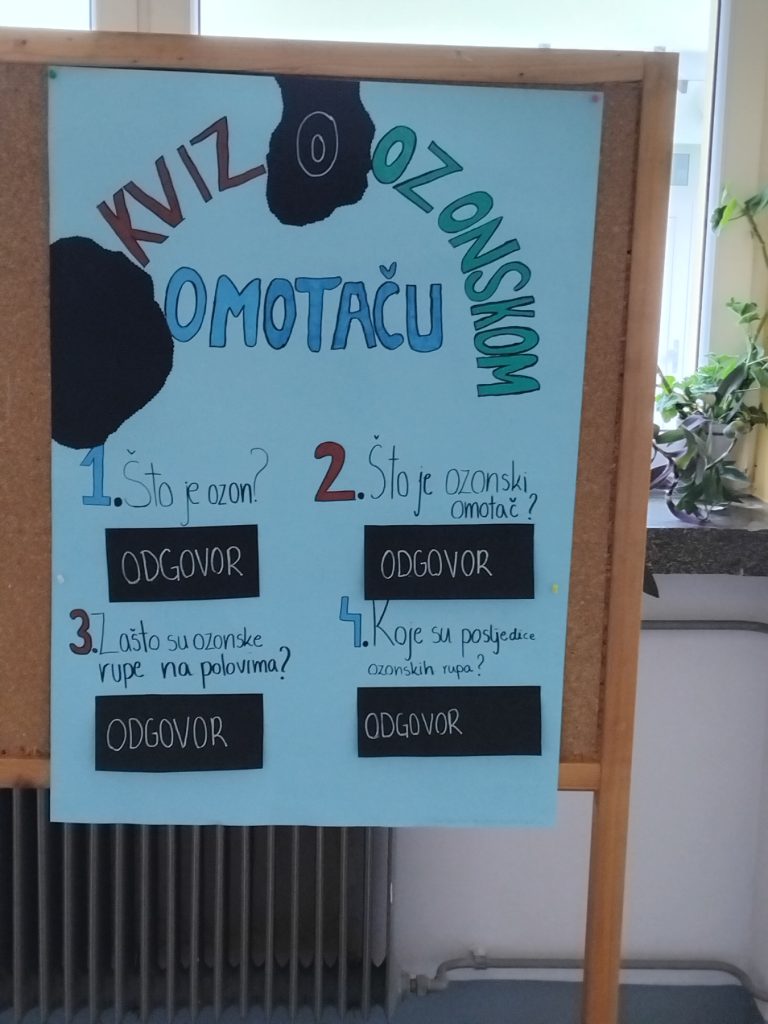 KVIZ O OZONSKOM
OMOTAČU
1. Što je ozon?
ODGOVOR
2. Što je ozonski
omotač?
ODGOVOR
3. Zašto su ozonske
rupe na polovima?
ODGOVOR
4. Koje su posljedice
ozonskih rupa?
ODGOVOR